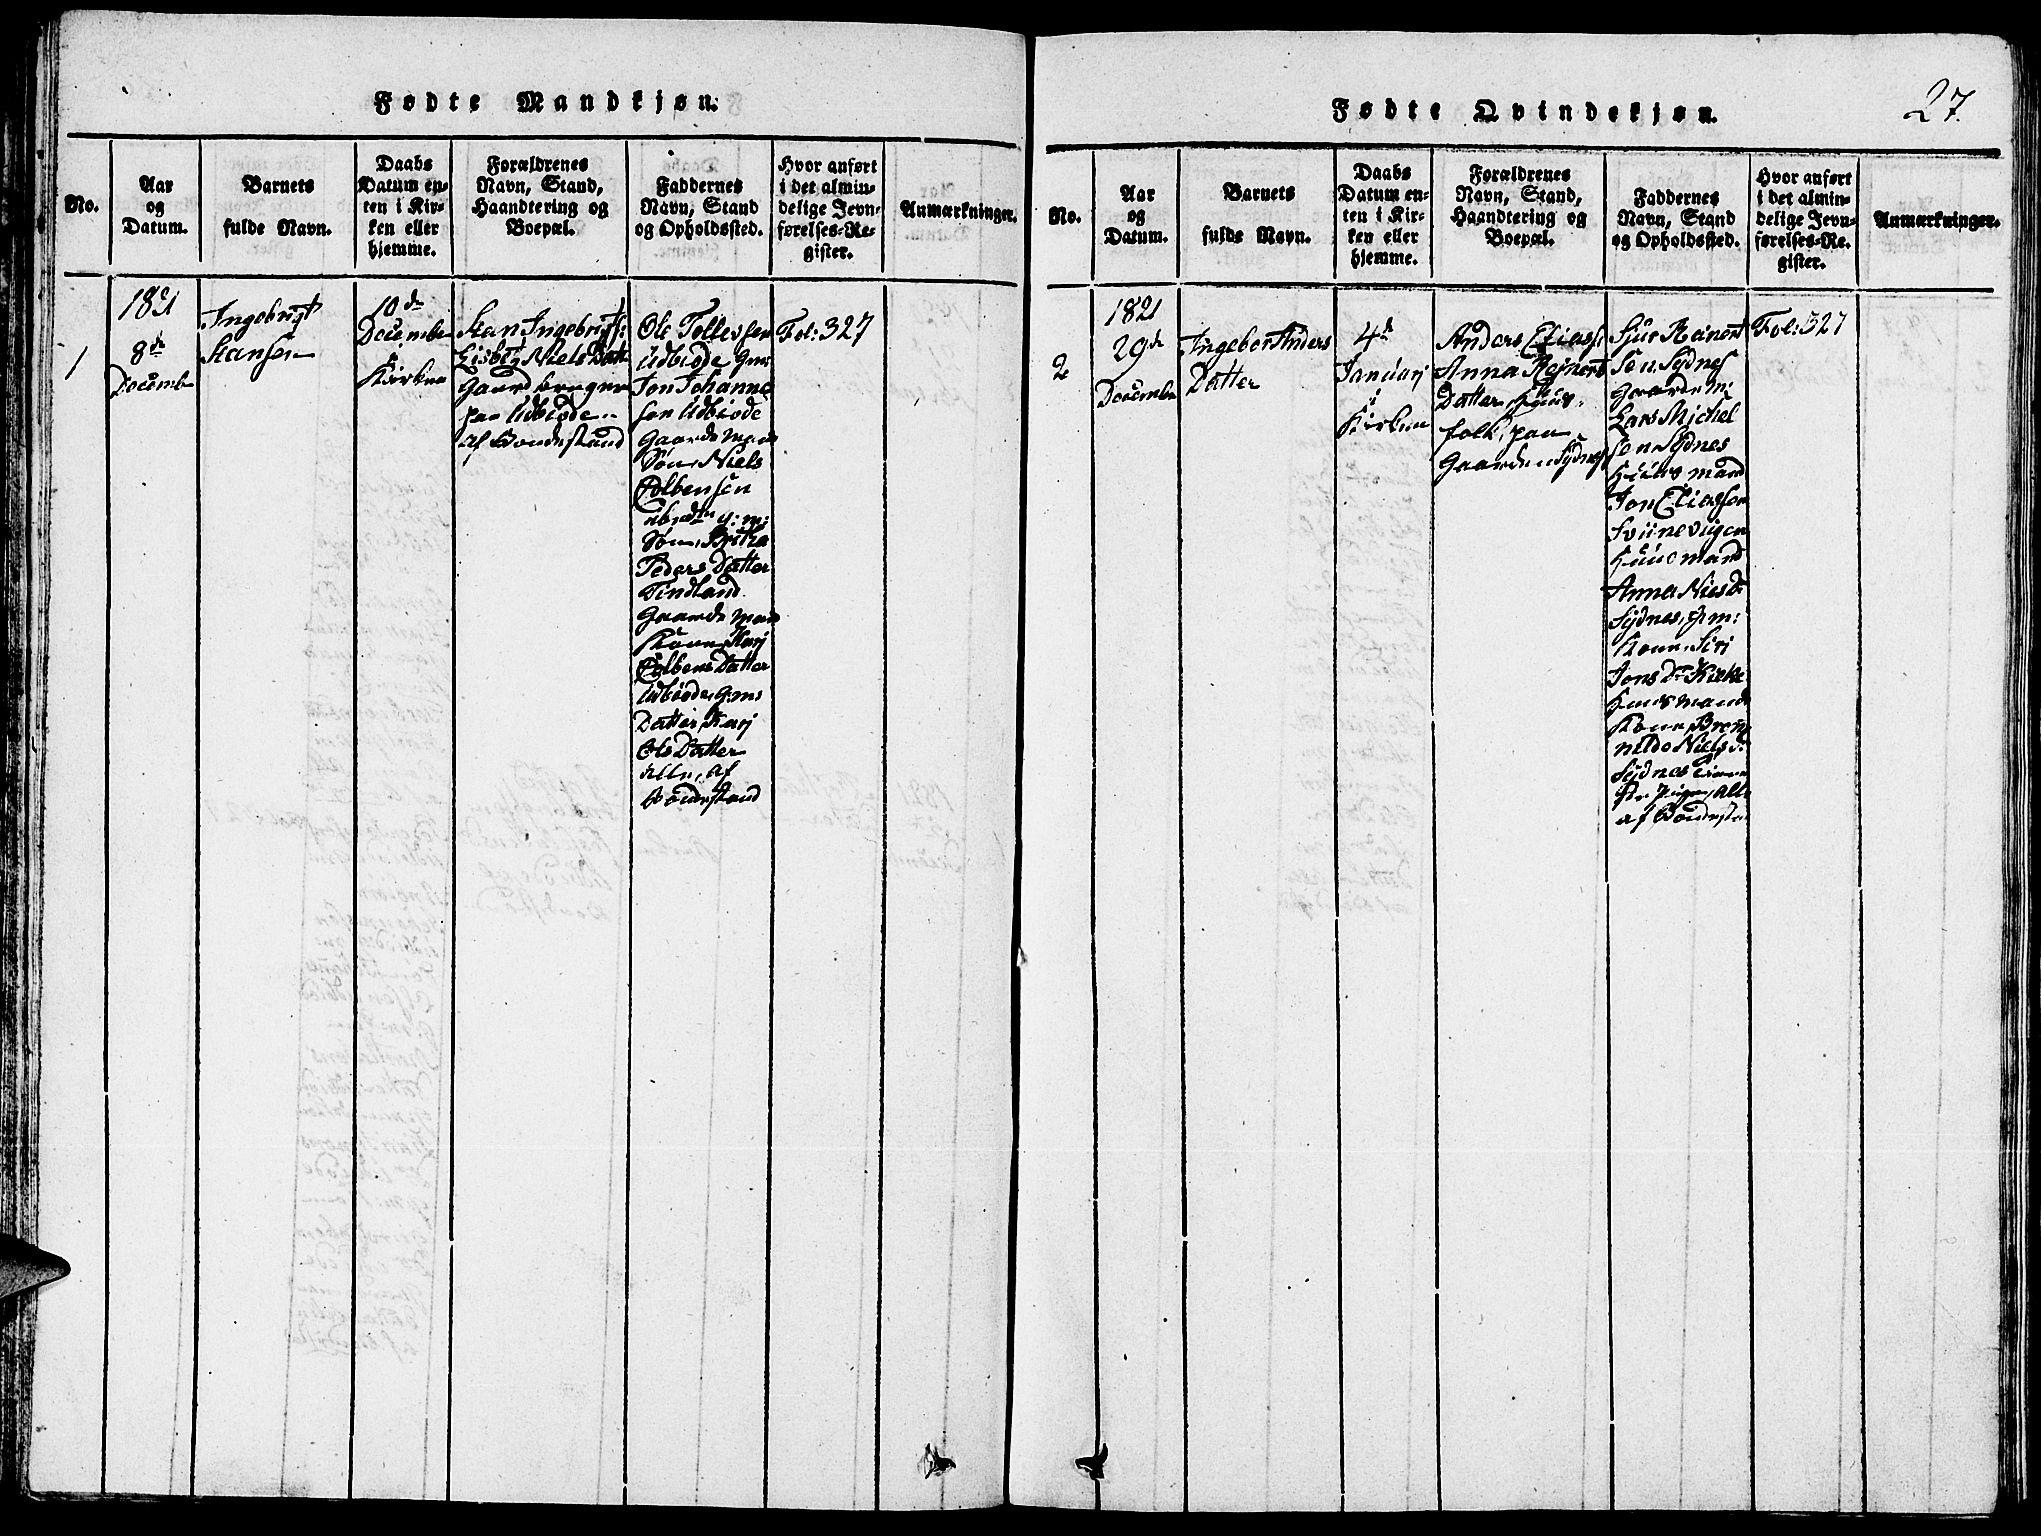 Fødte Mandkjøn.
No.
Aar
og
Datum.
Barnets
fulde Navn.
Daabs
Datum en-
ten i Kir-
ken eller
hjemme.
Forældrenes
Navn, Stand,
Haandtering og
Boepæl.
Faddernes
Navn, Stand
og Opholdssted.
Hvor anført
i det almin-
delige Jevn-
førelses-Re-
gister.
Anmærkninger.
1
1821
8de
Decemb
Ingebrigt
Hansen
10de
Decembe
i
Kirken
Han Ingebrigts:
Lisbet Niels Datt
Gaardbruger
paa Udbiøde
af Bondestand
Ole Tollefsen
Udbiøde
Jon Johanne
sen Udbiøde
Gaarde Man
Søn, Niels
Colbensen
g: m:
Søn, Britha
Peders Datter
Tindland
Gaarde Man
Kone, Karj
Colbens Datter
Udbiøde, g: m:
Datter, Karj
Ols Datter
alle, af
Bondestand
Fol: 327
Fødte Qvindekjøn.
27.
No.
Aar
og
Datum.
Barnets
fulde Navn.
Daabs
Datum en-
ten i Kir-
ken eller
hjemme.
Forældrenes
Navn, Stand,
Haandtering og
Boepæl.
Faddernes
Navn, Stand
og Opholdssted.
Hvor anført
i det almin-
delige Jevn-
førelses-Re-
gister.
Anmærkninger.
2
1821
29de
Decembe
Ingebor Anders
Datter
4de
Januarj
i
Kirken
Anders Eliass:
Anna Rejnert
Datter, Huus-
folk, paa
Gaarden Sydnes
Sjur Reinert
Sen Sydnes
Gaardem:
Lars Michel
sen Sydnes
Huus mand
Jon Eliassen
Sviinevigen
Huusmand
Anna Niels D:
Sydnes, g: m:
Kone, Siri
Jons Dr Kirke
Huusmands
Kone,
Niels D:
Sydnes
Pige, Alle
af Bondesta
Fol: 327